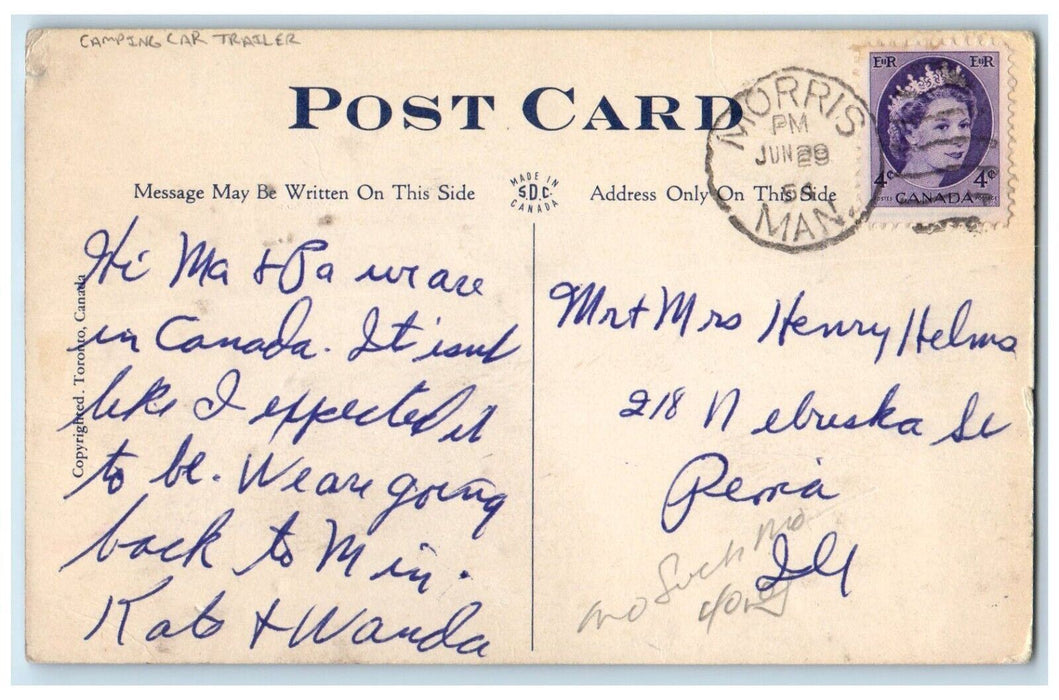 CAMPING CAR TRAILER
POST CARD
MORRIS
PM
JUN 29
MAN.
EIIR EIIR
4¢ 4¢
POSTES CANADA POSTAGE
Message May Be Written On This Side
MADE IN
S.D.C.
CANADA
Address Only On This Side
Copyrighted. Toronto, Canada
Hi Ma & Pa we are
in Canada. It isnt
like I expected it
to be. We are going
back to Minn.
& Wanda
Mr & Mrs Henry Helms
218 Nebraska St
Peoria
Ill
no Such no